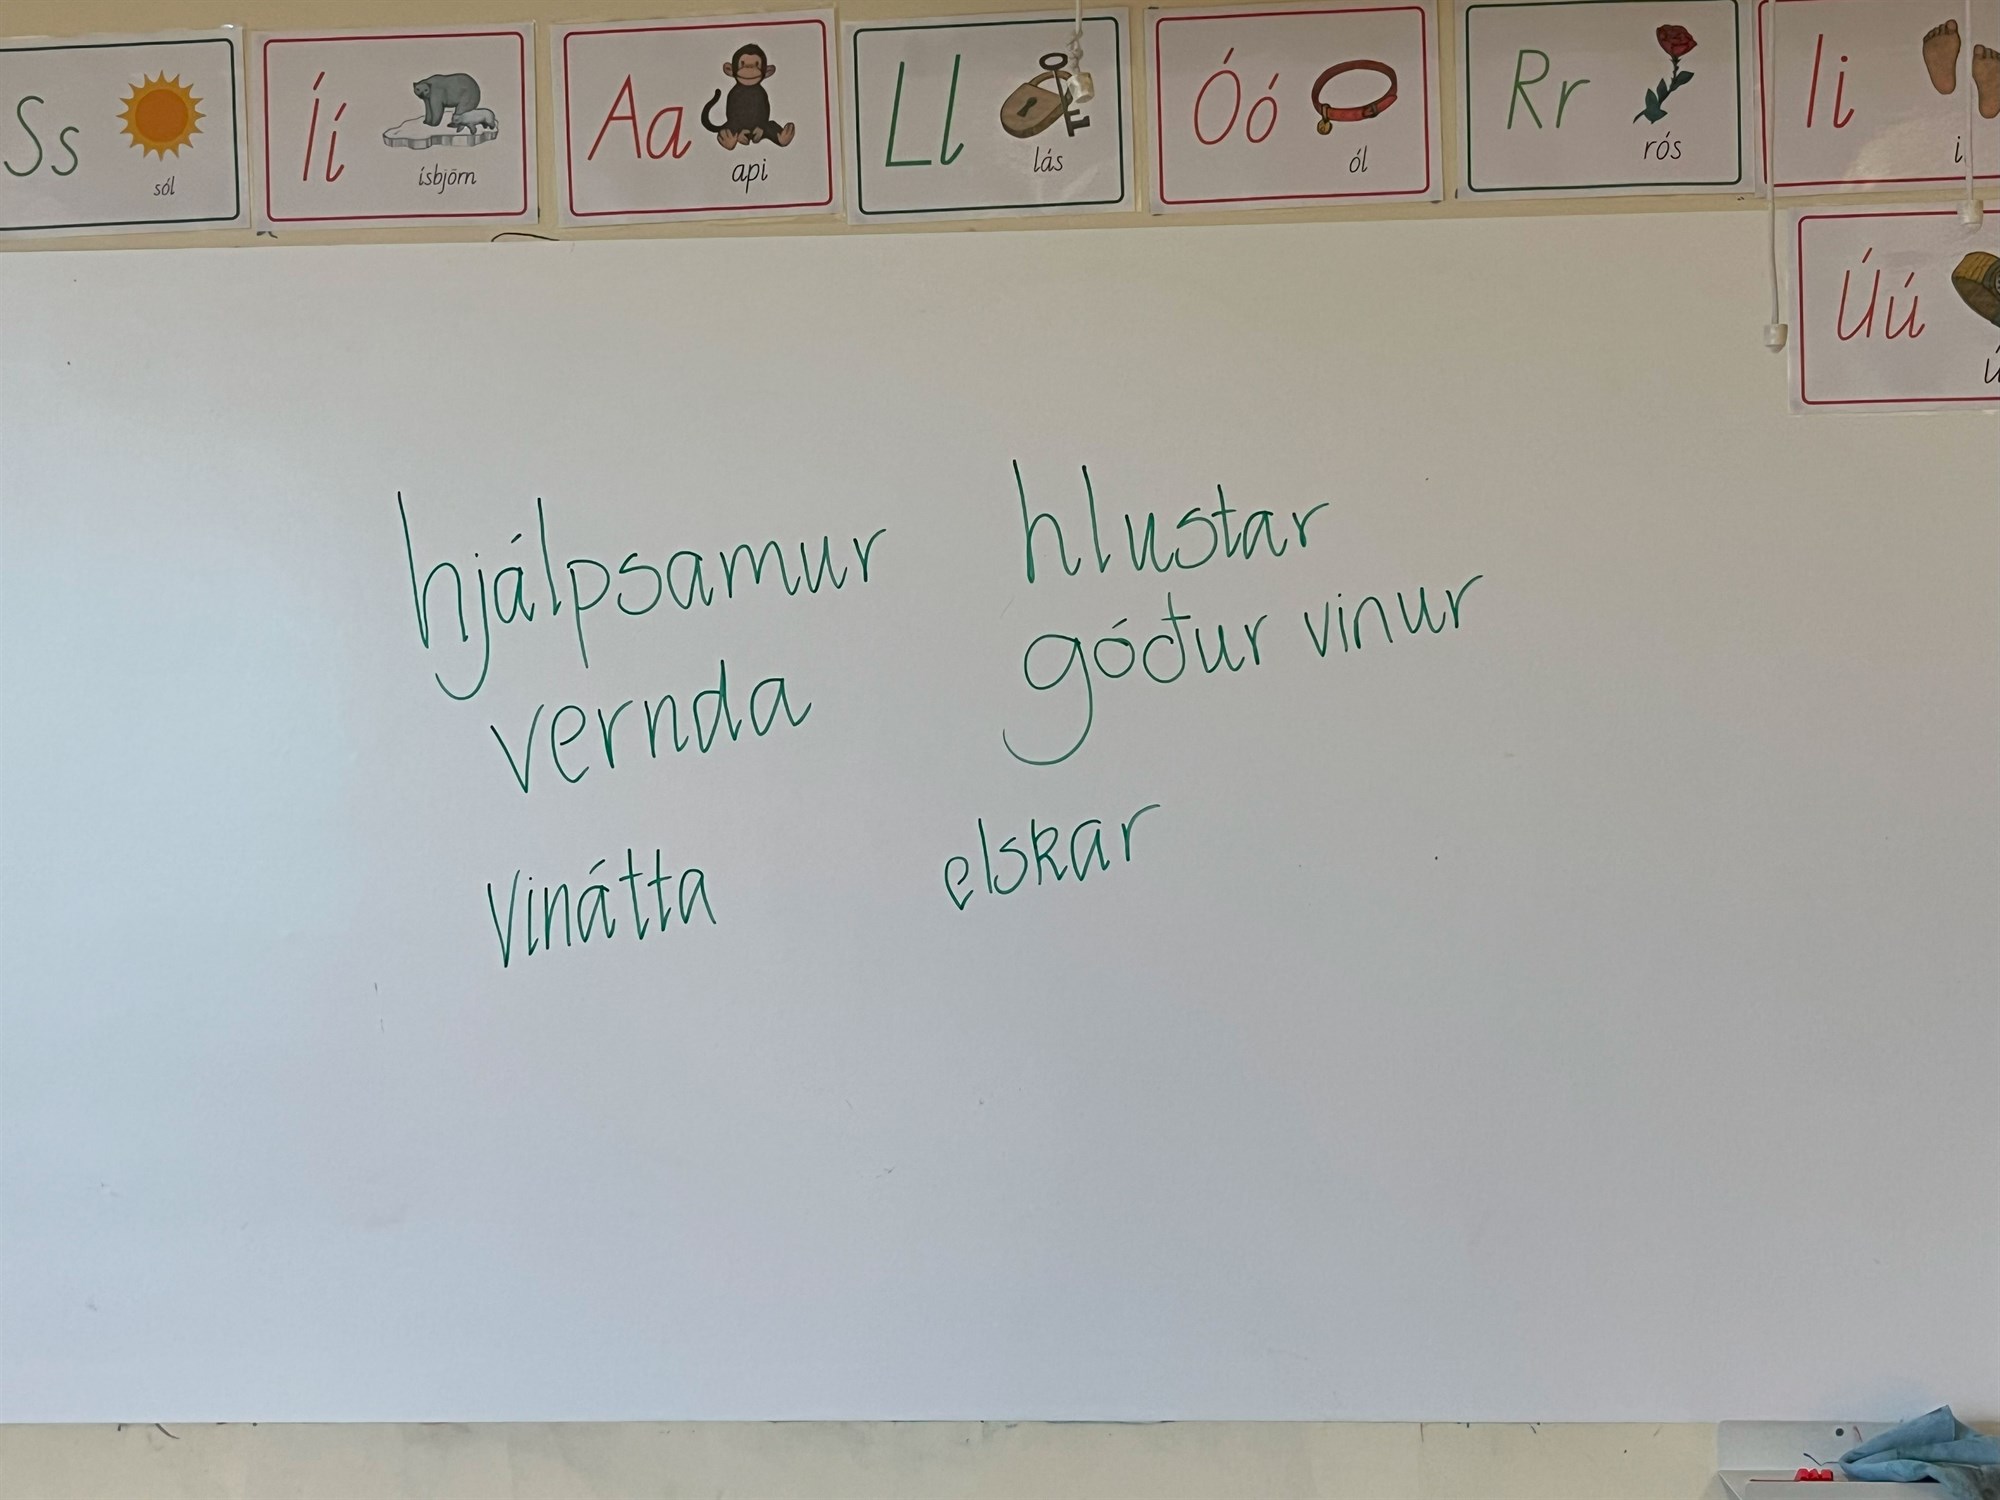 Ss sól
Íí ísbjörn
Aa api
Ll lás
Óó ól
Rr rós
Ii
Úú
hjálpsamur
hlustar
góður vinur
vernda
vinátta
elskar